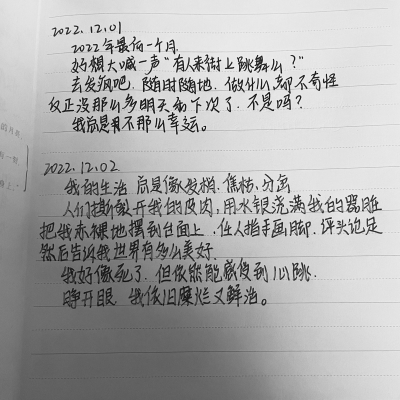 2022.12.01
2022年最后一个月
好想大喊一声“有人来街上跳舞么？”
去发疯吧．随时随地．做什么都不奇怪
反正没那么多明天和下次了．不是吗？
我总是不那么幸运。
2022.12.02
我的生活 总是像发梢．焦枯．分岔
人们撕裂开我的皮肉，用水银浇满我的器脏
把我赤裸地摆到台面上．任人指手画脚．评头论足
然后告诉我世界有多么美好．
我好像死了．但依然能感受到心跳．
睁开眼 我依旧糜烂又鲜活。